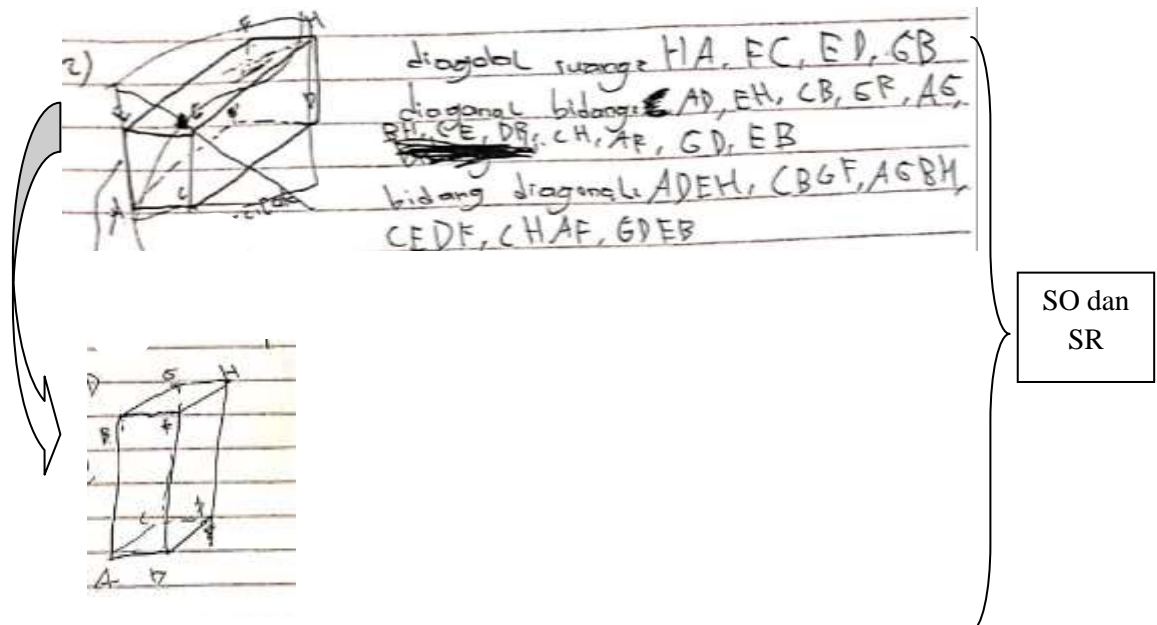 2)
diagolal ruang: HA, FC, ED, GB
diagonal bidang: AD, EH, CB, GF, AG,
BH, CE, DF, CH, AF, GD, EB
bidang diagonal: ADEH, CBGF, AGBH,
CEDF, CHAF, GDEB
SO dan
SR
G H
B F
C
A D